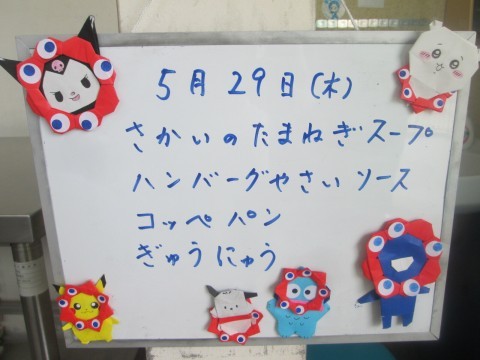 5月29日(木)
さかいのたまねぎスープ
ハンバーグやさいソース
コッペパン
ぎゅうにゅう